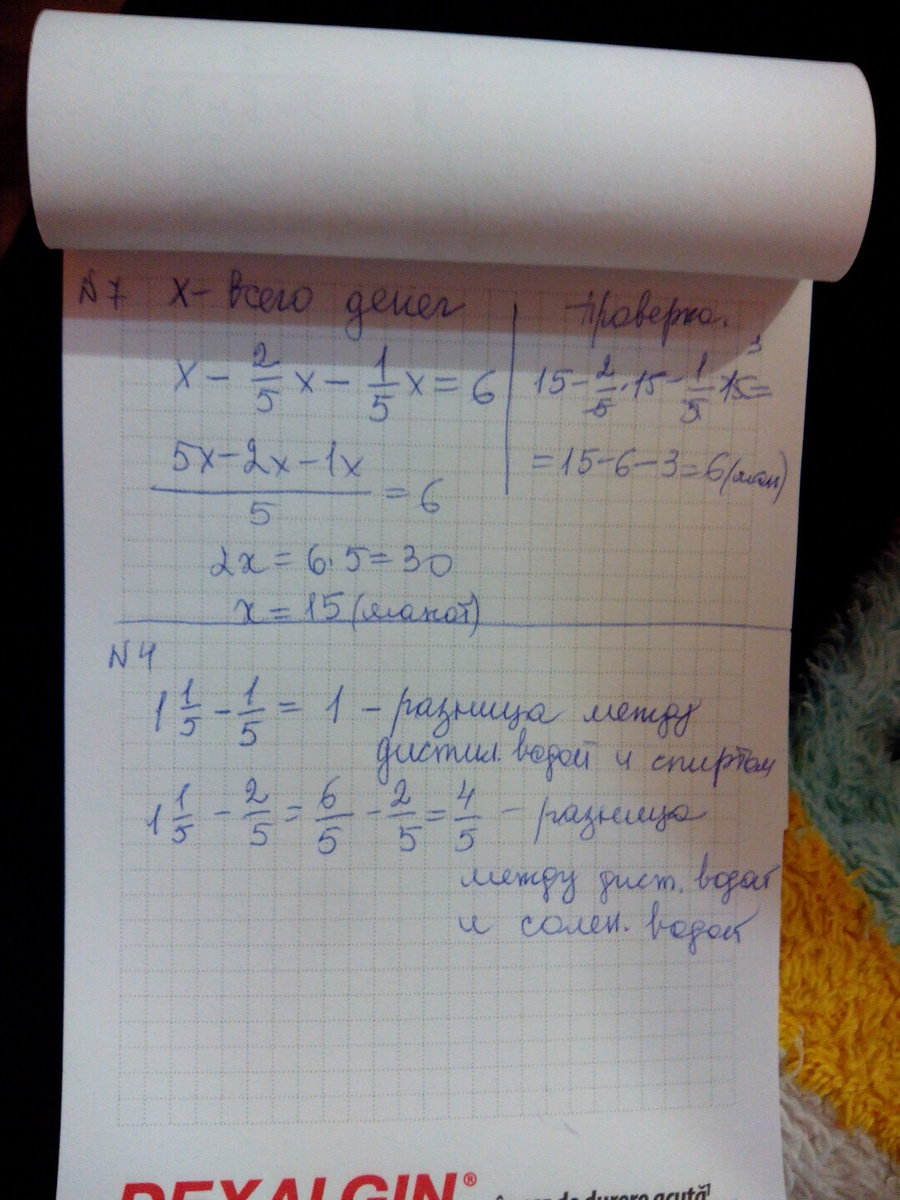 N7 x - всего денег
x - 2/5 x - 1/5 x = 6
5x-2x-1x/5 = 6
2x = 6·5 = 30
x = 15 (манат)
Проверка.
15 - 2/5 · 15 - 1/5 · 15 3 =
= 15-6-3 = 6 (ман)
N4
1 1/5 - 1/5 = 1 - разница между
дистил. водой и спиртом
1 1/5 - 2/5 = 6/5 - 2/5 = 4/5 - разница
между дист. водой
и солен. водой
DEXALGIN®
durere acută